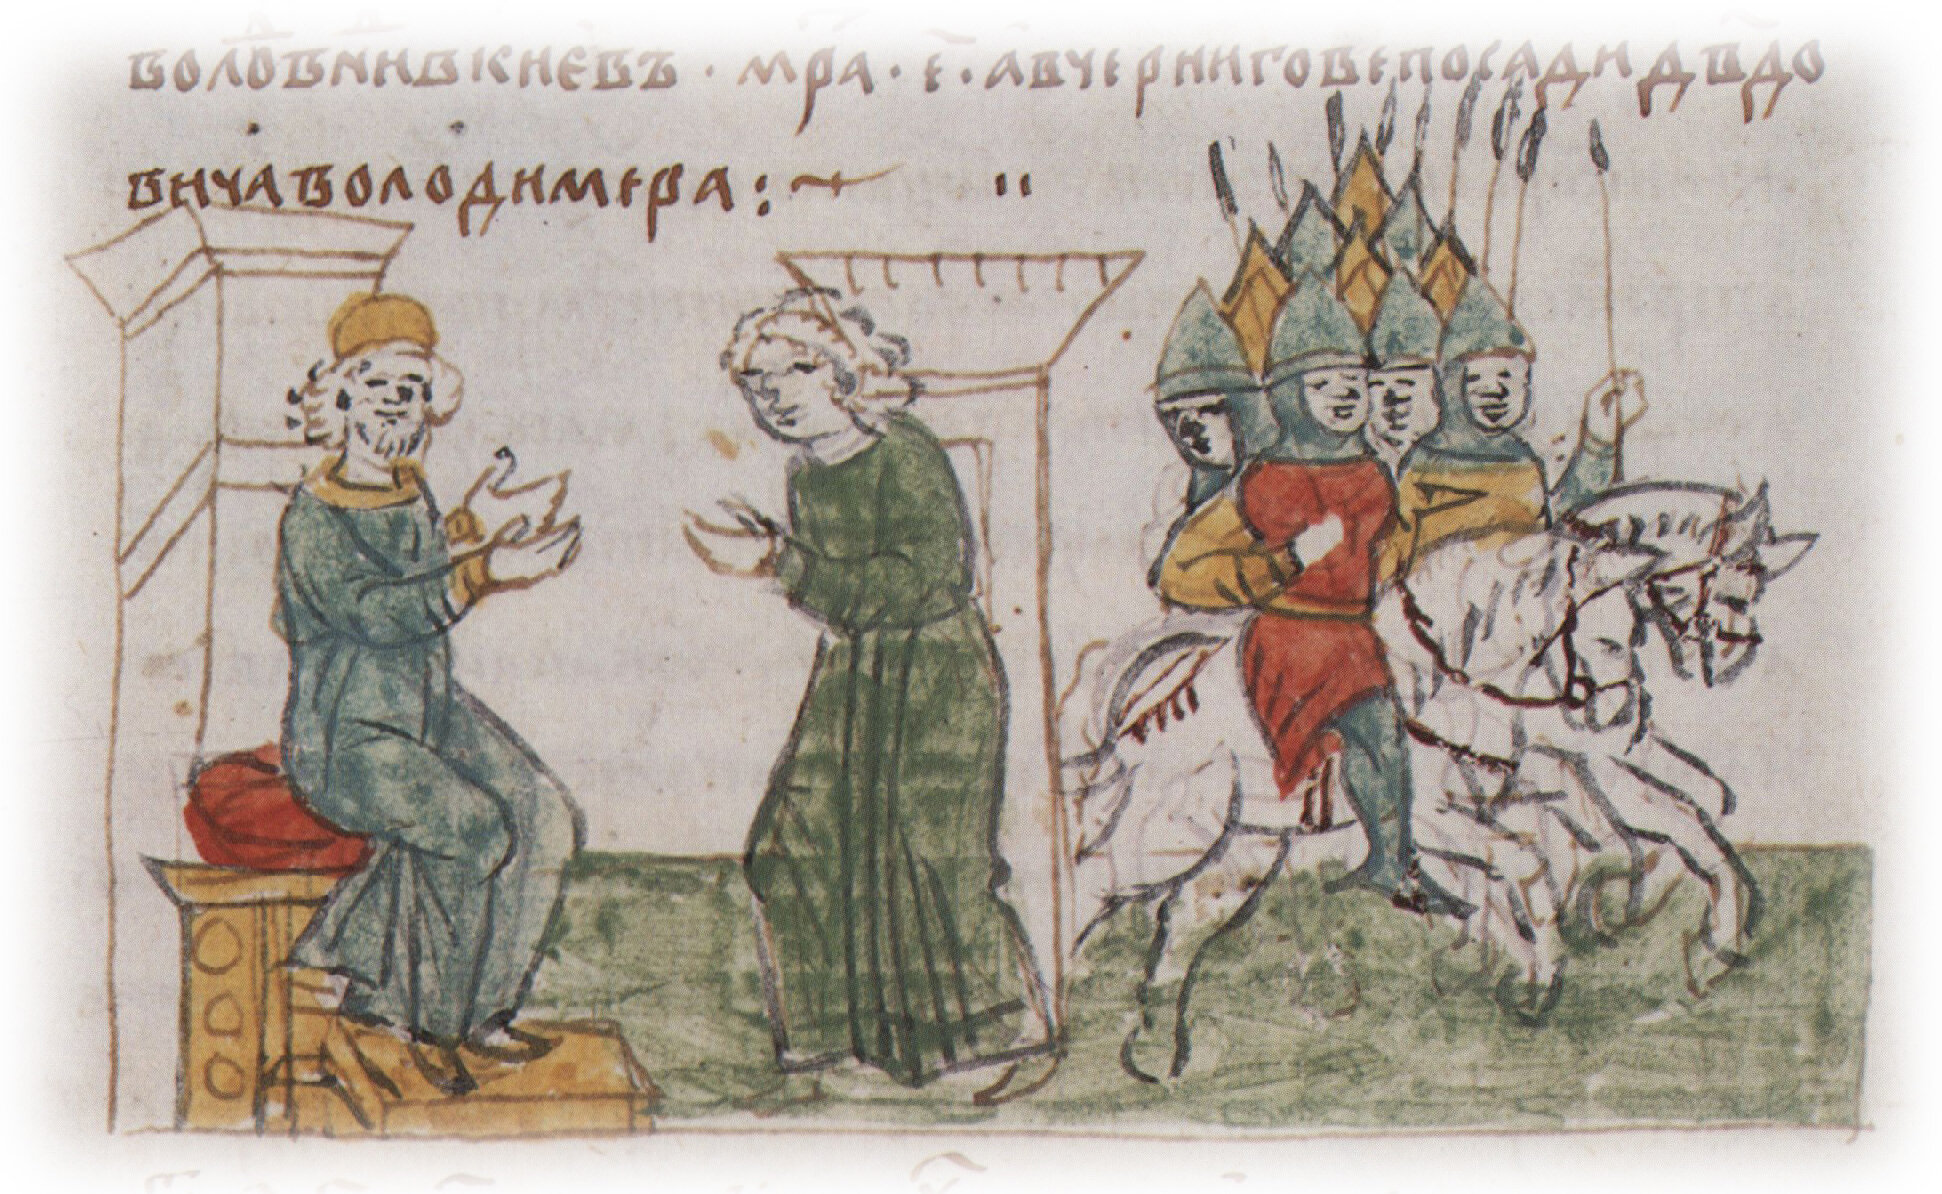 воло въни в киевъ · мра · е · а в чернигове посади двдо
вича володимера :~